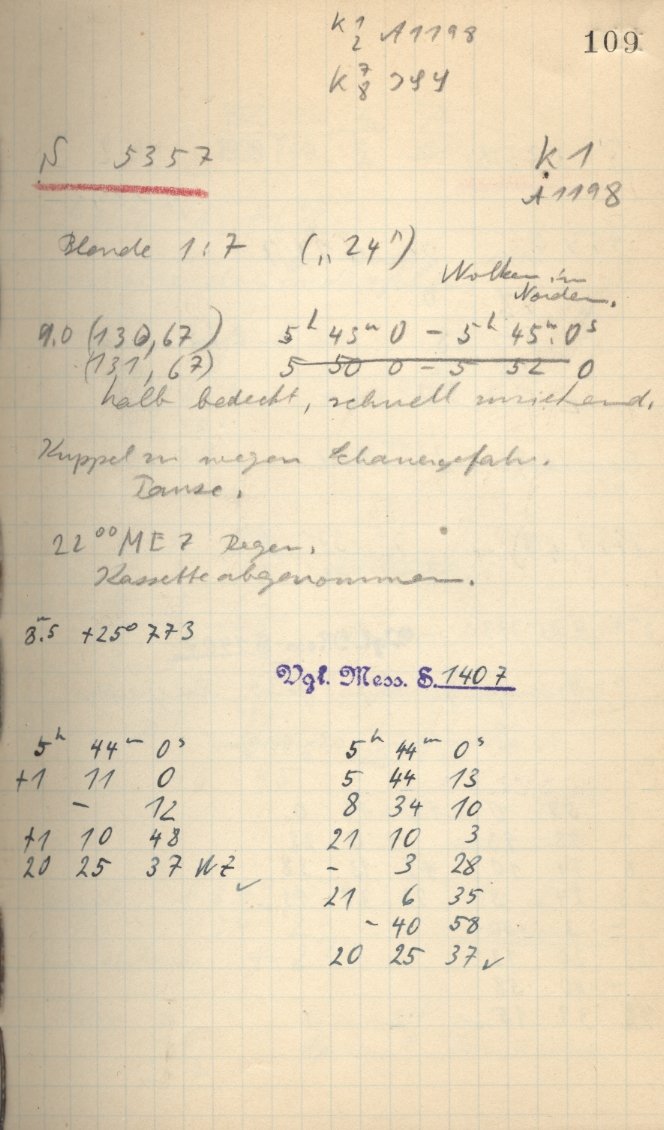 K 1/2 A1198
109
K 7/8
N 5357
K1
A1198
Blende 1:7 („24")
Wolken im
Norden.
9.0 (130,67) 5h 43m 0 – 5h 45m.0s
(131,67) 5 50 0 – 5 52 0
halb bedeckt, schnell zuziehend.
Kuppel zu wegen Schauergefahr.
Pause.
22⁰⁰ MEZ Regen.
Kassette abgenommen.
8m.5 +25° 773
Vgl. Mess. S. 1407
5h 44m 0s
+1 11 0
– 12
+1 10 48
20 25 37 WZ ✓
5h 44m 0s
5 44 13
8 34 10
21 10 3
– 3 28
21 6 35
– 40 58
20 25 37 ✓